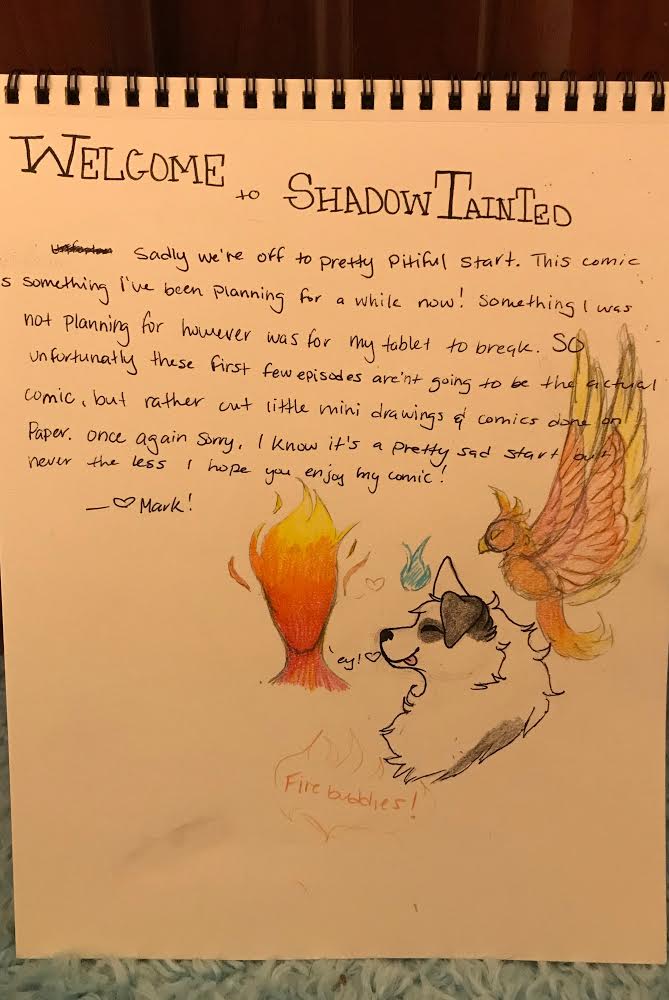 WELCOME to SHADOWTAINTED
Sadly we're off to pretty Pitiful start. This comic
s something I've been planning for a while now! Something I was
not planning for however was for my tablet to break. SO
unfortunatly these first few episodes are'nt going to be the actual
comic, but rather cut little mini drawings & comics done on
Paper. once again Sorry, I know it's a pretty sad start but
never the less I hope you enjoy my comic!
—♡Mark!
'ey!♡
Fire buddies!